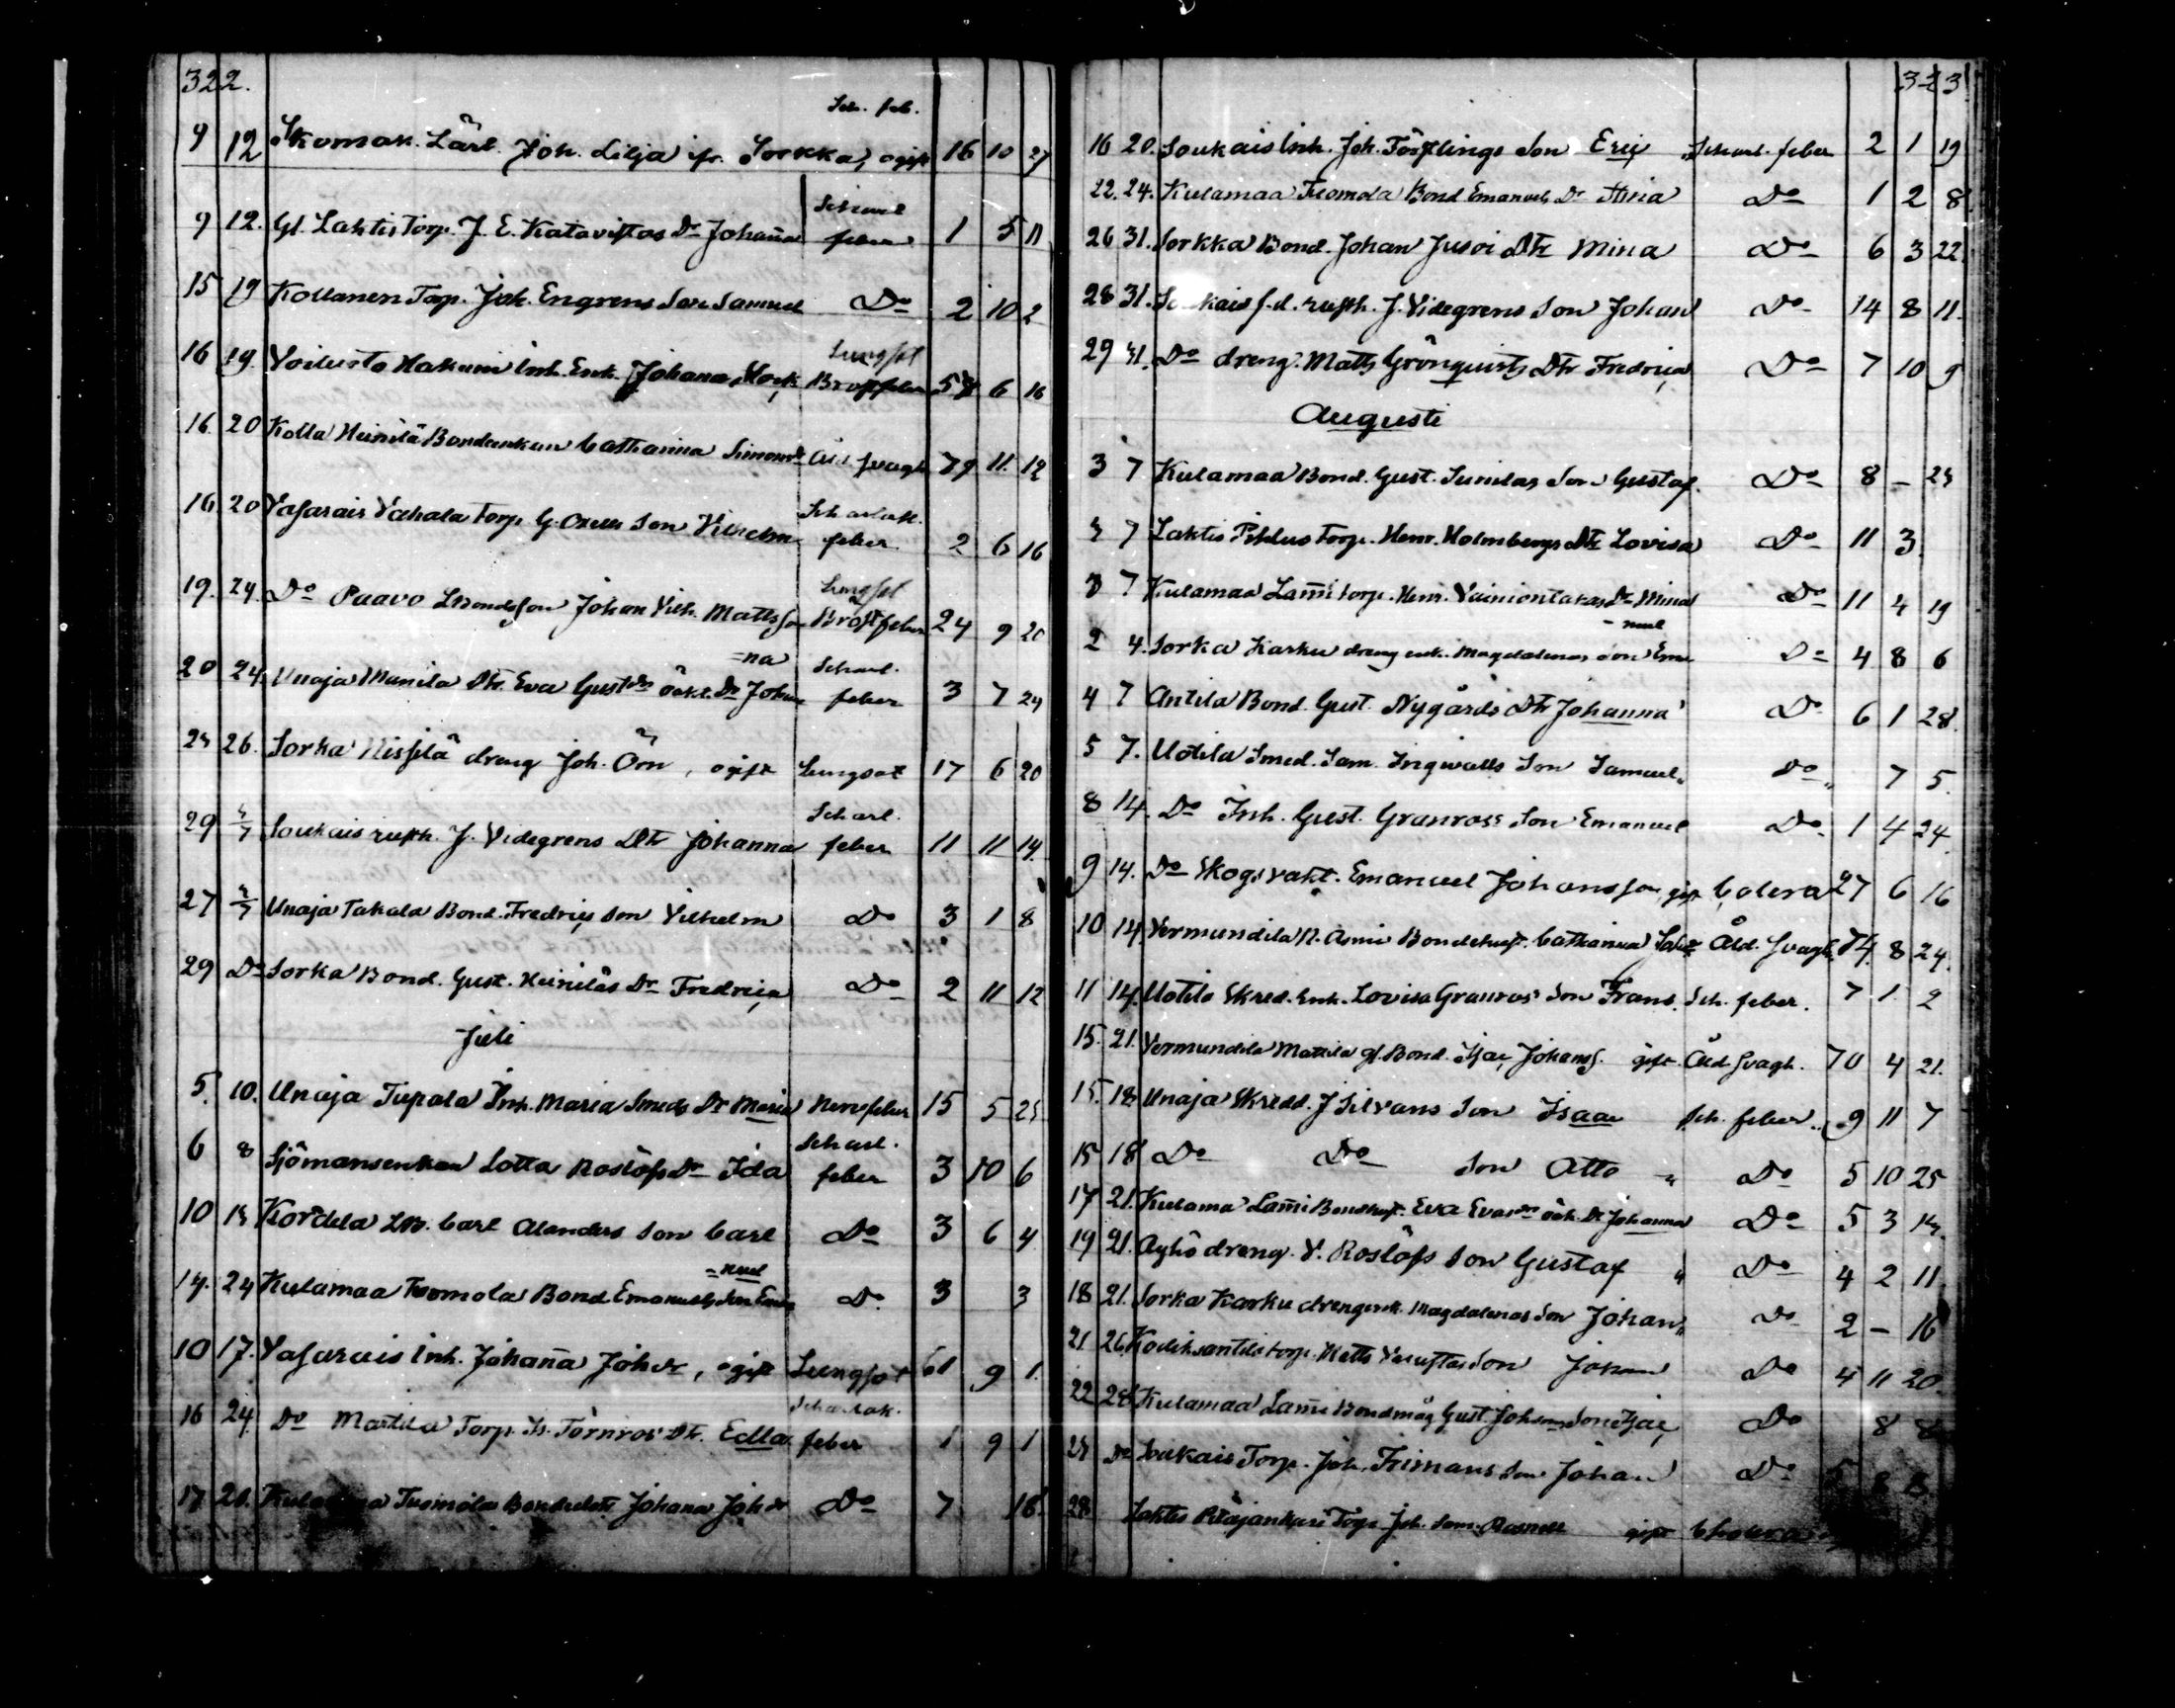 322.
Sch. feb.
9 12 Skomak. Lärl. Joh. Lilja ifr. Sorkka, ogift 16 10 27
Scharl
9 12. Gl. Laktis Torp. J. E. Katavistos Dr Johanna feber 1 5 11
15 19 Kollanen Torp. Joh. Engrens Son Samuel Do 2 10 2
Lungsot
16 19. Voiluoto Hakuni Inh. Enk. Johana Bröstfeber 6 16
16. 20 Kolla Heinilä Bondeenkan Catharina Simonsdr Åld. svagh 79 11. 12
Scharlak.
16 20 Vasarais Yahala Torp. G. Son Vilhelm feber. 2 6 16
Lungsot
19. 24. Do Paavo Bondeson Johan Vilh. Mattsson Bröstfeber 24 9 20
=na Scharl.
20 24. Unaja Manila Dtr. Eva Gustdrs oäkt. Dr Johan feber 3 7 24
23 26. Sorka Nissilä dreng Joh. Örn, ogift Lungsot 17 6 20
Scharl.
29 3/7 Soukais rusth. J. Videgrens Dtr Johanna feber 11 11 14.
27 3/7 Unaja Takala Bond. Fredrics Son Vilhelm Do 3 1 8
29 Do Sorka Bond. Gust. Heiniläs Dr Fredrica Do 2 11 12
Juli
5. 10. Unaja Tiepola Inh. Maria Smeds Dr Maria Nervfeber 15 5 25
Scharl.
6 8 Sjömansenkan Lotta Roslöfs Dr Ida feber 3 10 6
10 13 Kordela Carl Alanders Son Carl Do 3 6 4
=nuel
14. 24 Kulamaa Tuomola Bond. Emanuels Son Ema Do 3 3
10 17. Vasarais Inh. Johanna Johdr, ogift Lungsot 61 9 1.
Scharlak.
16 24. Do Mattila Torp. Is. Törnros Dtr. Edla feber 1 9 1
17 21. Tuomolas Johana Johdr Do 7 16.
323.
16 20. Soukais Inh. Joh. Son Eric Scharl. feber 2 1 19
22. 24. Kulamaa Tuomola Bond Emanuels Dr Do 1 2 8.
26 31. Sorkka Bond. Johan Jusoi Dtr Mina Do 6 3 22.
28 31. f.d. rusth. J. Videgrens Son Johan Do 14 8 11.
29 31. Do dreng. Matts Grönqvists Dtr Fredrica Do 7 10 9
Augusti
3 7 Kulamaa Bond. Gust. Sunilas Son Gustaf. Do 8 – 23
3 7 Laktis Pihlus Torp. Henr. Holmbergs Dtr Lovisa Do 11 3.
3 7 Kulamaa Lammi torp. Henr. Vainiontakas Dr Mina Do 11 4 19
–nuel
2 4. Sorka Karku dreng enk. Magdalenas Son Ema Do 4 8 6
4 7 Antila Bond. Gust. Nygårds Dtr Johanna Do 6 1 28.
5 7. Uotila Smed. Sam. Ingwalls Son Samuel Do 7 5.
8 14. Do Inh. Gust. Granross Son Emanuel Do 1 4 24.
9 14. Do Skogsvakt. Emanuel Johansson, gift Colera 27 6 16
10 14. Vermundila Bondehust. Catharina Åld. svagh. 74. 8 24.
11 14. Uotila Skred. Enk. Lovisa Granros' Son Frans. Sch. feber. 7 1. 2
15. 21. Vermundila Mattila gl. Bond. Isac Johans. gift Åld svagh. 70 4 21.
15. 18. Unaja Skredd. J Silvans Son Isaac Sch. feber. 9 11 7
15 18 Do Do Son Otto „ Do 5 10 25
17 21. Kulama Lammi Bondhust. Eva Evasdrs oäk. Dr Johanna Do 5 3 14.
19 21. Äyhö dreng. V. Roslöfs Son Gustaf „ Do 4 2 11.
18 21. Sorka Karku drengenk. Magdalenas Son Johan „ Do 2 – 16
21 26. Kodiksantila torp. Matts Son Johan Do 4 11 20.
22 28 Kulamaa Lammi Bondmåg Gust. Johans Son Isac Do 8 8
23 Do Soukais Torp. Joh. Frimans Son Johan Do 8 8
28 Laktis Torp. Joh. Sam. gift Cholera